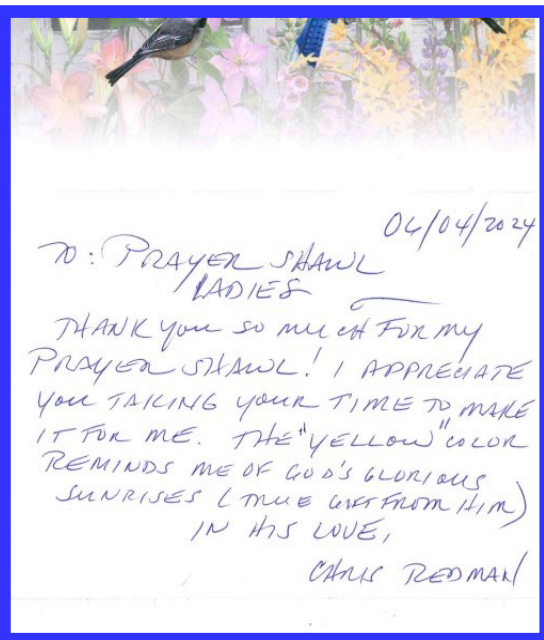 04/04/2024
TO: PRAYER SHAWL
LADIES
THANK YOU SO MUCH FOR MY
PRAYER SHAWL! I APPRECIATE
YOU TAKING YOUR TIME TO MAKE
IT FOR ME. THE "YELLOW" COLOR
REMINDS ME OF GOD'S GLORIOUS
SUNRISES (TRUE GIFT FROM HIM)
IN HIS LOVE,
CHRIS REDMAN